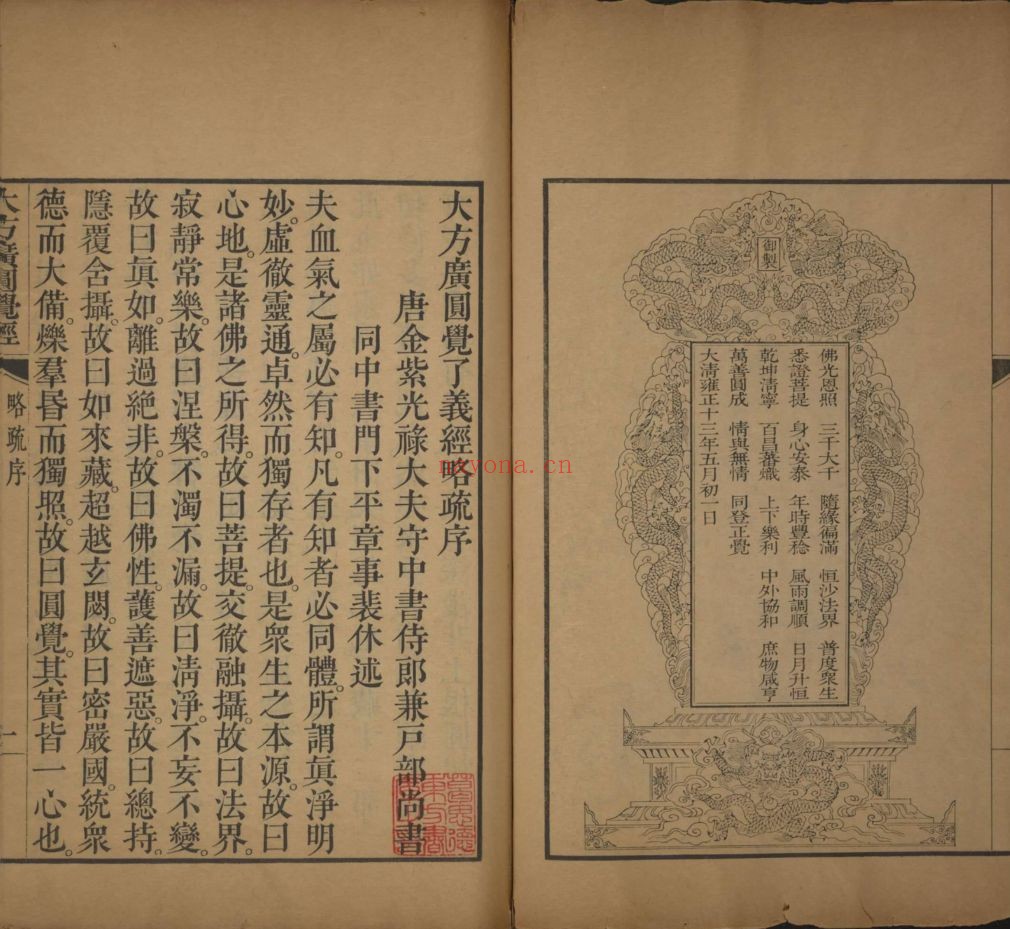 御製
佛光恩照　三千大千　隨緣徧滿　恒沙法界　普度衆生
悉證菩提　身心安泰　年時豐稔　風雨調順　日月升恒
乾坤清寧　百昌蕃熾　上下樂利　中外協和　庶物咸亨
萬善圓成　情與無情　同登正覺
大清雍正十三年五月初一日
大方廣圓覺了義經略疏序
唐金紫光祿大夫守中書侍郎兼戸部尚書
同中書門下平章事裴休述
夫血氣之屬必有知。凡有知者必同體。所謂眞淨明
妙。虛徹靈通。卓然而獨存者也。是衆生之本源。故曰
心地。是諸佛之所得。故曰菩提。交徹融攝。故曰法界。
寂靜常樂。故曰涅槃。不濁不漏。故曰清淨。不妄不變。
故曰眞如。離過絕非。故曰佛性。護善遮惡。故曰總持。
隱覆含攝。故曰如來藏。超越玄閟。故曰密嚴國。統衆
德而大備。爍羣昏而獨照。故曰圓覺。其實皆一心也。
大方廣圓覺經
略疏序
一
nzyona.cn